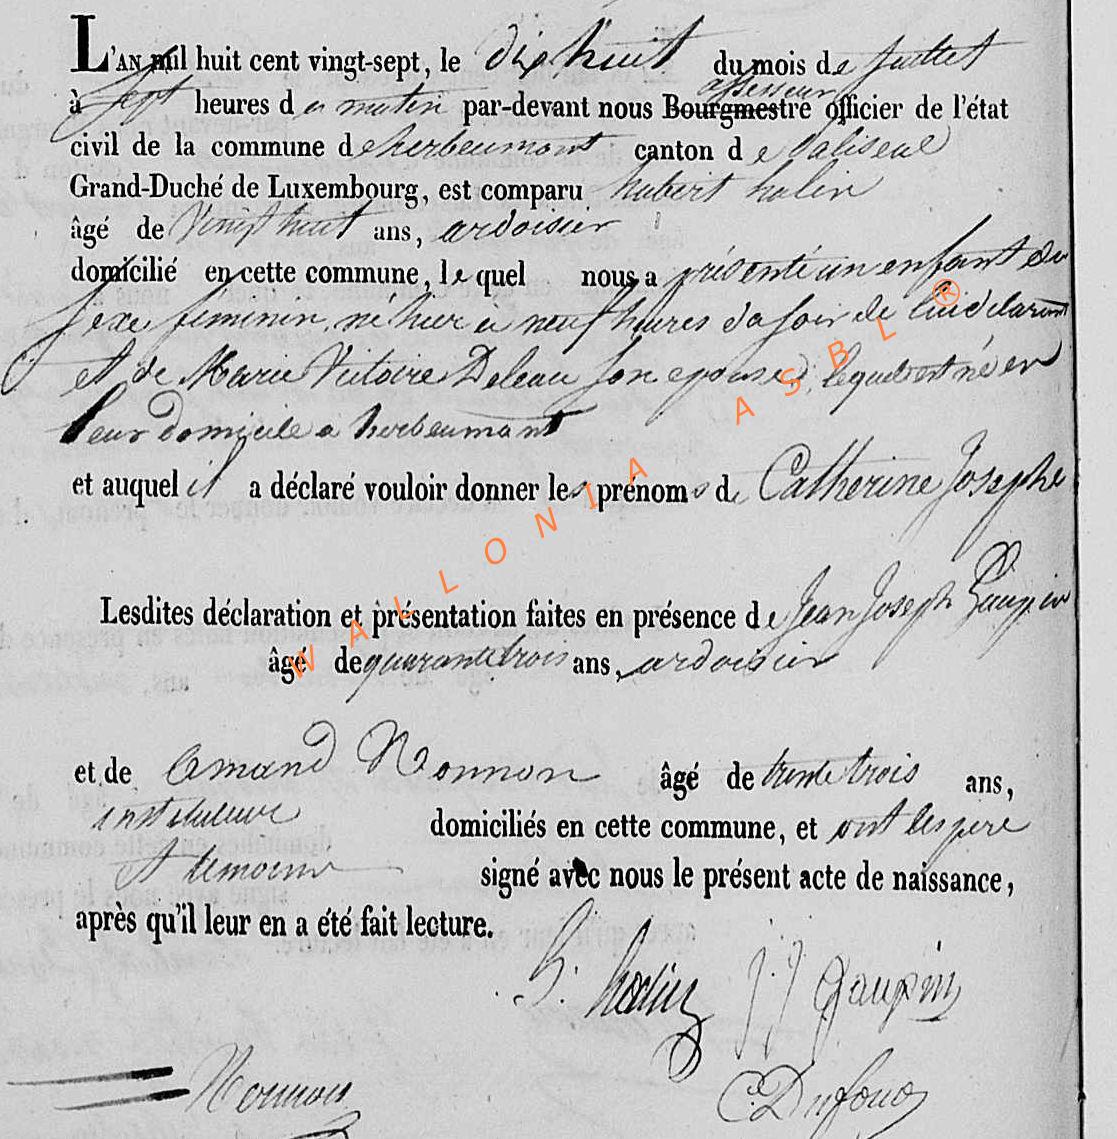 L'AN mil huit cent vingt-sept, le dix huit du mois de juillet
assesseur
à sept heures du matin par-devant nous Bourgmestre officier de l'état
civil de la commune d'herbeumont canton de Paliseul
Grand-Duché de Luxembourg, est comparu hubert
âgé de vingt huit ans, ardoisier
domicilié en cette commune, lequel nous a présenté un enfant du
sexe feminin, né hier à neuf heures du soir de lui declarant
et de Marie Victoire Deleau son epouse, lequel est né en
leur domicile a herbeumont
et auquel il a déclaré vouloir donner les prénoms de Catherine Josephe
Lesdites déclaration et présentation faites en présence de Jean Joseph Gaupin
âgé de quarante trois ans, ardoisier
et de Amand Nonnon âgé de trente trois ans,
instituteur domiciliés en cette commune, et ont les pere
et temoins signé avec nous le présent acte de naissance,
après qu'il leur en a été fait lecture.
J. J. Gaupin
Nonnon C. Dufour
WALLONIA ASBL ®